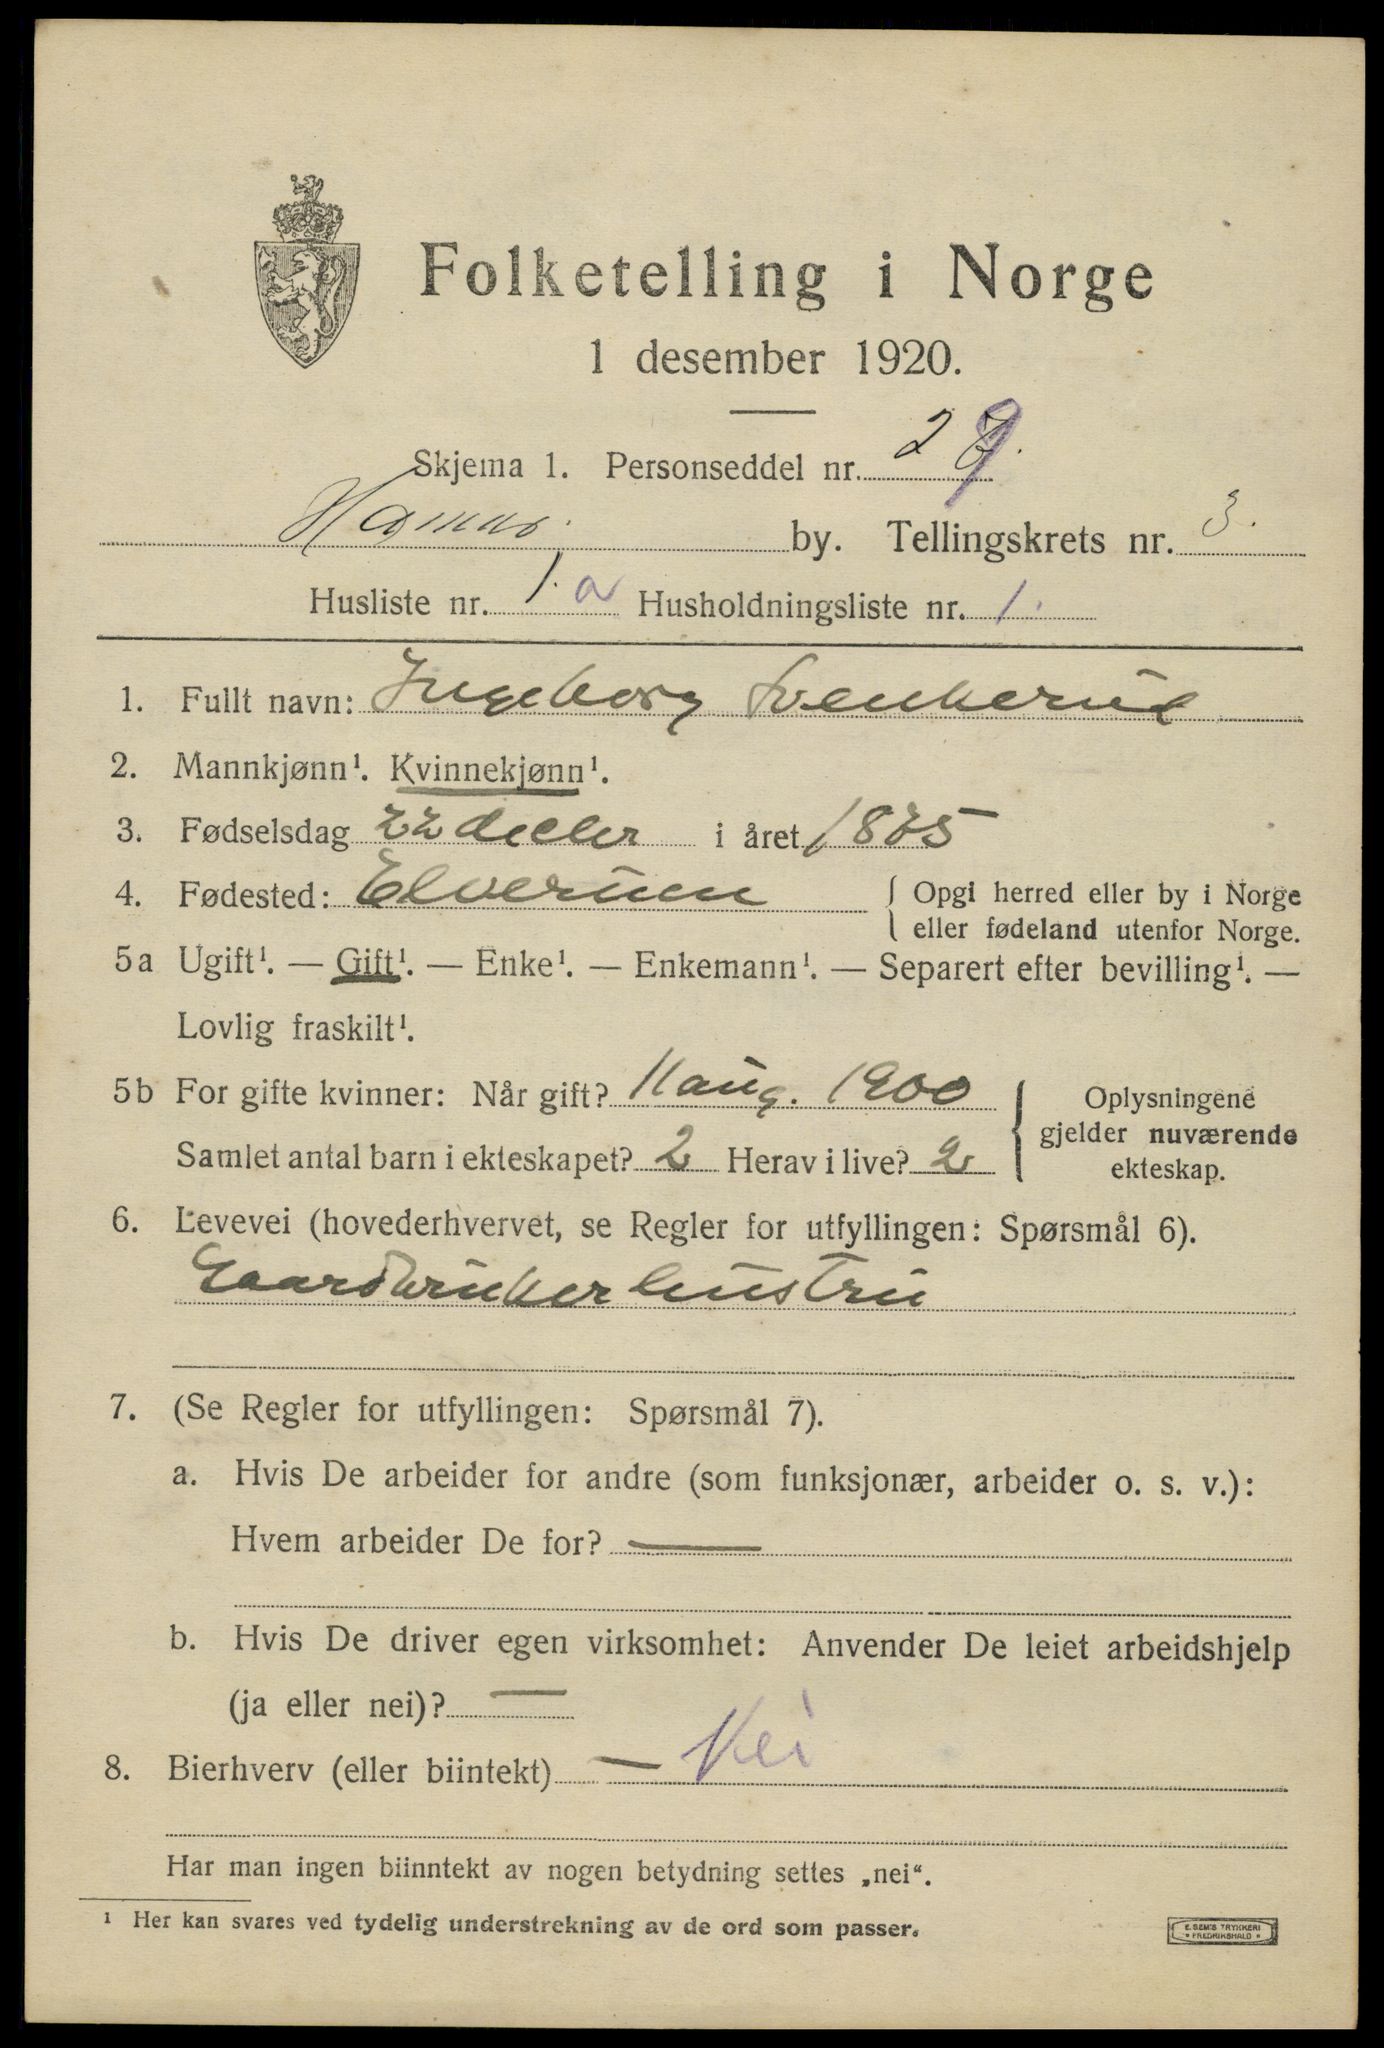 Folketelling i Norge
1 desember 1920.
Skjema 1. Personseddel nr. 29
Hamar by. Tellingskrets nr. 3.
Husliste nr. 1. a Husholdningsliste nr. 1.
1. Fullt navn: Ingeborg Svenkerud
2. Mannkjønn¹. Kvinnekjønn¹.
3. Fødselsdag 22 decber i året 1875
4. Fødested: Elverum { Opgi herred eller by i Norge
eller fødeland utenfor Norge.
5a Ugift¹. — Gift¹. — Enke¹. — Enkemann¹. — Separert efter bevilling¹. —
Lovlig fraskilt¹.
5b For gifte kvinner: Når gift? 11 aug. 1900 { Oplysningene
gjelder nuværende
ekteskap.
Samlet antal barn i ekteskapet? 2 Herav i live? 2
6. Levevei (hovederhvervet, se Regler for utfyllingen: Spørsmål 6).
Gaardbrukerhustru
7. (Se Regler for utfyllingen: Spørsmål 7).
a. Hvis De arbeider for andre (som funksjonær, arbeider o. s. v.):
Hvem arbeider De for? —
b. Hvis De driver egen virksomhet: Anvender De leiet arbeidshjelp
(ja eller nei)? —
8. Bierhverv (eller biintekt) — Nei
Har man ingen biinntekt av nogen betydning settes „nei“.
¹ Her kan svares ved tydelig understrekning av de ord som passer.
E. SEM'S TRYKKERI
FREDRIKSHALD